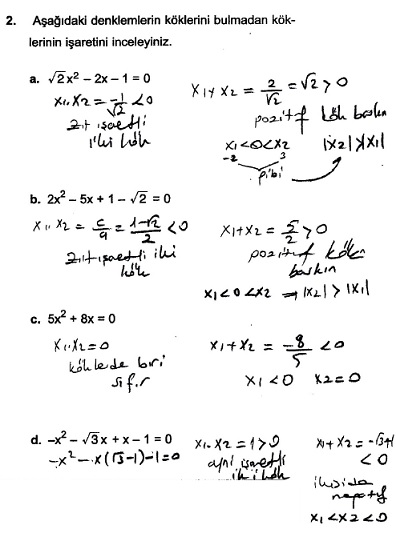 2. Aşağıdaki denklemlerin köklerini bulmadan kök-
lerinin işaretini inceleyiniz.
a. √2x² – 2x – 1 = 0
x₁.x₂ = -1/√2 < 0
zıt işaretli
iki kök
x₁+x₂ = 2/√2 = √2 > 0
pozitif kök baskın
x₁<0<x₂ |x₂|>|x₁|
-2 3
gibi
b. 2x² – 5x + 1 – √2 = 0
x₁.x₂ = c/a = 1-√2/2 < 0
zıt işaretli iki
kök
x₁+x₂ = 5/2 > 0
pozitif kök
baskın
x₁<0<x₂ ⇒ |x₂| > |x₁|
c. 5x² + 8x = 0
x₁.x₂ = 0
köklerde biri
sıfır
x₁+x₂ = -8/5 < 0
x₁<0 x₂=0
d. –x² – √3x + x – 1 = 0
-x² - x(√3-1)-1=0
x₁.x₂ = 1 > 0
aynı işaretli
iki kök
x₁+x₂ = -√3+1
< 0
ikiside
negatif
x₁<x₂<0